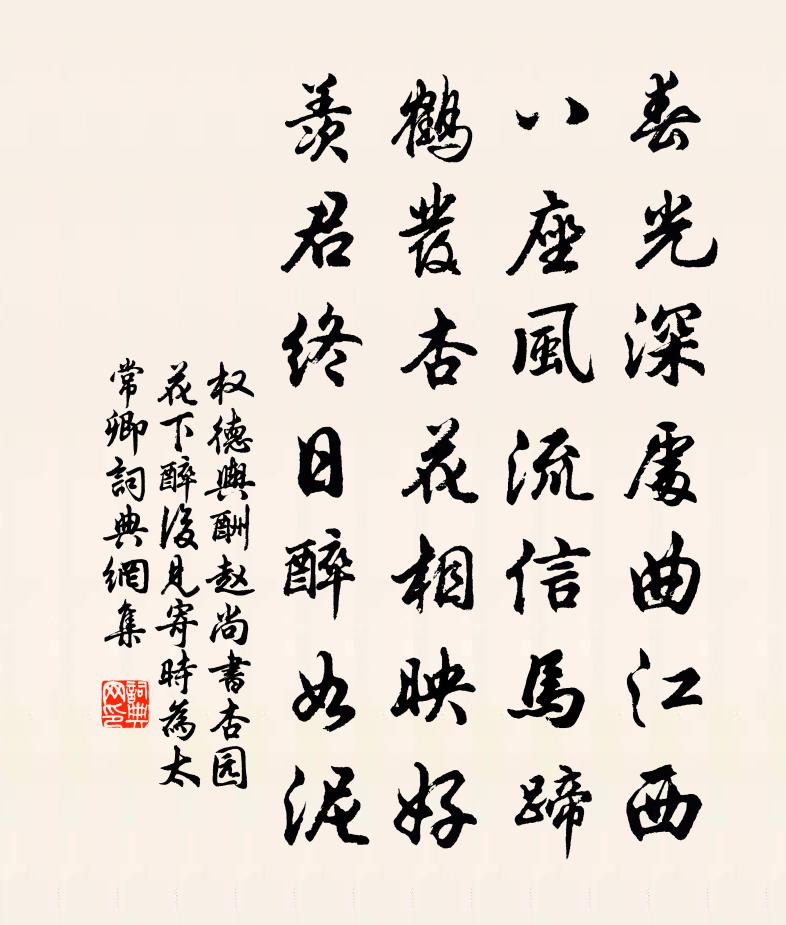 春光深處曲江西
八座風流信馬蹄
鶴發杏花相映好
羨君終日醉如泥
权德輿酬赵尚書杏园
花下醉後見寄時為太
常卿詞典網集
詞典网印